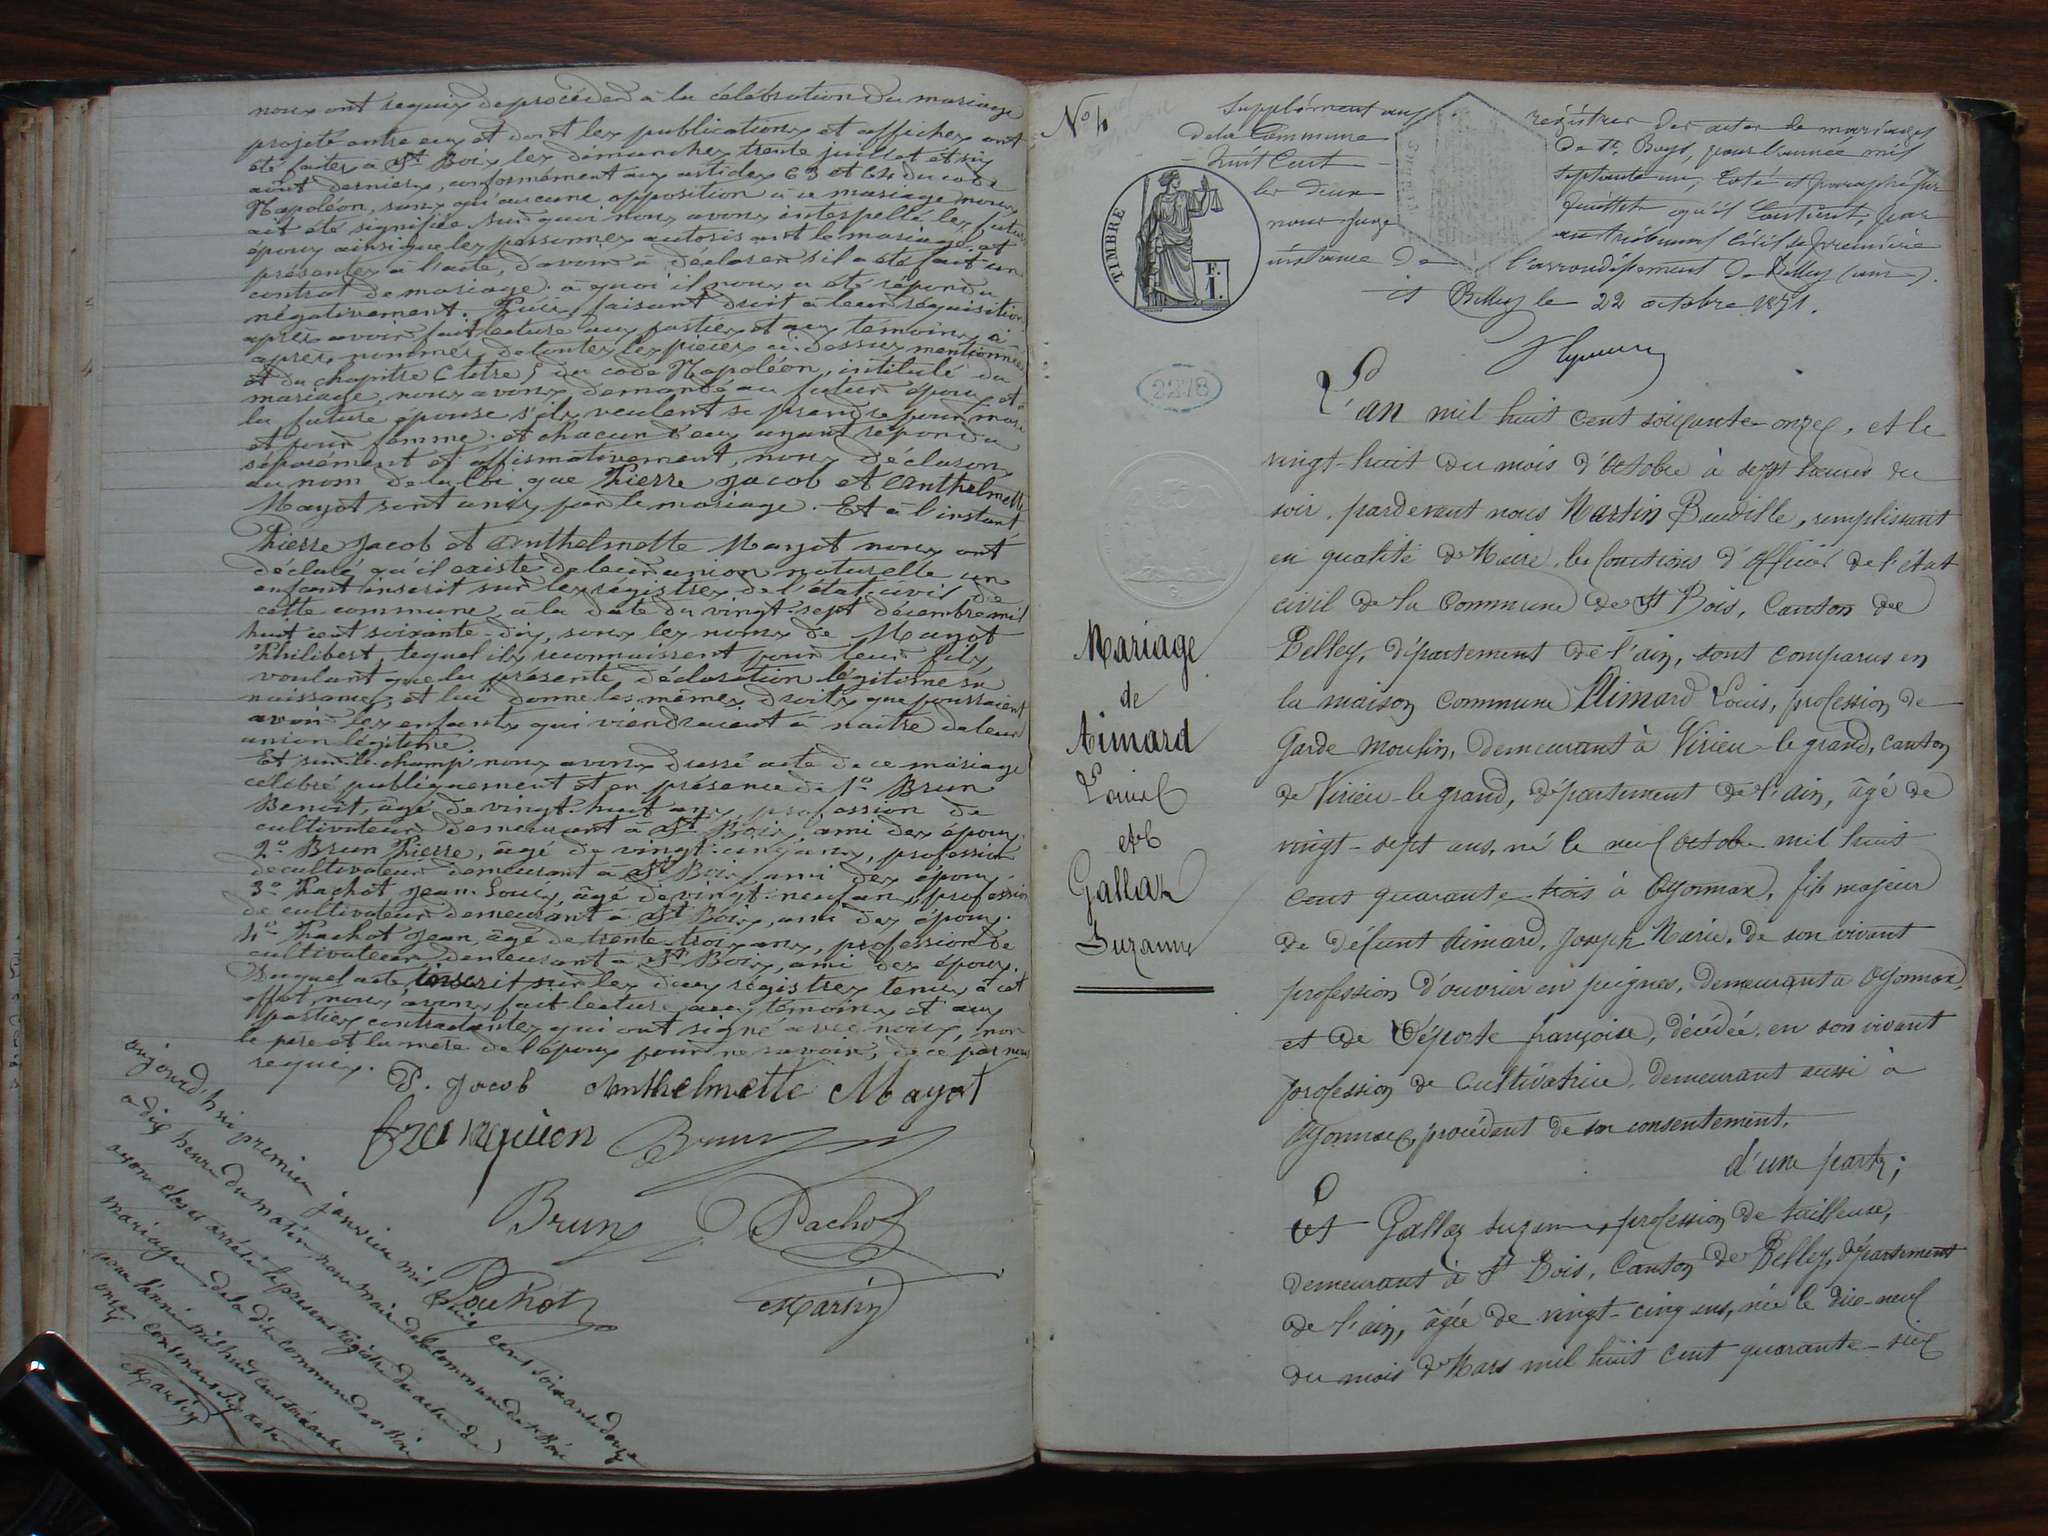 nous ont requis de procéder à la célébration du mariage
projeté entre eux et dont les publications et affiches ont
été faites à St Bois les dimanches trente juillet et six
août derniers, conformément aux articles 63 et 64 du code
Napoléon, sans qu'aucune opposition à ce mariage nous
ait été signifiée sur quoi nous avons interpellé les futurs
époux ainsi que les personnes autorisant le mariage et
présentes à l'acte, d'avoir à déclarer s'il a été fait un
contrat de mariage à quoi il nous a été répondu
négativement. Puis, faisant droit à leur réquisition
après avoir fait lecture aux parties et aux témoins ci-
après nommés de toutes les pièces ci-dessus mentionnées
et du chapitre 6 titre 5 du code Napoléon, intitulé du
mariage, nous avons demandé au futur époux et à
la future épouse s'ils veulent se prendre pour mari
et pour femme et chacun d'eux ayant répondu
séparément et affirmativement, nous déclarons
au nom de la loi que Pierre Jacob et Anthelmette
Mayot sont unis par le mariage. Et à l'instant
Pierre Jacob et Anthelmette Mayot nous ont
déclaré qu'il existe de leur union naturelle un
enfant inscrit sur les régistres de l'état civil de
cette commune à la date du vingt sept décembre mil
huit cent soixante-dix, sous les noms de Mayot
Philibert, lequel ils reconnaissent pour leur fils,
voulant que la présente déclaration légitime sa
naissance et lui donne les mêmes droits que pourraient
avoir les enfants qui viendraient à naître de leur
union légitime.
Et sur le champ nous avons dressé acte de ce mariage
célébré publiquement et en présence de 1º Brun
Benoit, âgé de vingt-huit ans, profession de
cultivateur demeurant à St Bois, ami des époux.
2º Brun Pierre, âgé de vingt-cinq ans, profession
de cultivateur demeurant à St Bois, ami des époux.
3º Pachot Jean Louis, âgé de vingt-neuf ans, profession
de cultivateur demeurant à St Bois, ami des époux.
4º Pachot Jean, âgé de trente-trois ans, profession de
cultivateur, demeurant à St Bois, ami des époux.
Duquel acte inscrit sur les deux régistres tenus à cet
effet, nous avons fait lecture aux témoins et aux
parties contractantes qui ont signé avec nous, non
le père et la mère de l'époux pour ne savoir, de ce par nous
requis.
P. Jacob Anthelmette Mayot
Brun
Brun Pachot
Pachot Martin
aujourd'hui premier janvier mil huit cent soixante douze
a dix heure du matin nous maire de la commune de St Bois
avons clos et arrété le present régistre du acte de
mariage de la dite commune de St Bois
pour l'année mil huit cent soixante
onze
Martin
Nº 4
Supplément aux régistres des actes de mariages
de la Commune de St Boys, pour l'année mil
huit cent septante un, coté et paraphé sur
les deux feuillets qu'il contient, par
nous juge au tribunal civil de première
instance de l'arrondissement de Belley (ain).
Belley le 22 octobre 1871.
TIMBRE
F.
1.
2278
Mariage
de
Aimard
Louis
et
Gallaz
Suzanne
L'an mil huit cent soixante-onze, et le
vingt-huit du mois d'octobre à sept heures du
soir, pardevant nous Martin Baudille, remplissant
en qualité de Maire, les fonctions d'officier de l'état
civil de la Commune de St Bois, Canton de
Belley, département de l'ain, sont comparus en
la maison commune Aimard Louis, profession de
garde moulin, demeurant à Virieu-le grand, canton
de Virieu-le grand, département de l'ain, âgé de
vingt-sept ans, né le neuf octobre mil huit
cent quarante-trois à Oyonnax, fils majeur
de défunt Aimard, Joseph Marie, de son vivant
profession d'ouvrier en peignes, demeurant à Oyonnax,
et de françoise, décédée, en son vivant
profession de Cultivatrice, demeurant aussi à
Oyonnax, procédant de son consentement.
d'une part;
Et Gallaz Suzanne, profession de tailleuse,
demeurant à St Bois, Canton de Belley, département
de l'ain, âgée de vingt-cinq ans, née le dix-neuf
du mois de Mars mil huit cent quarante-six